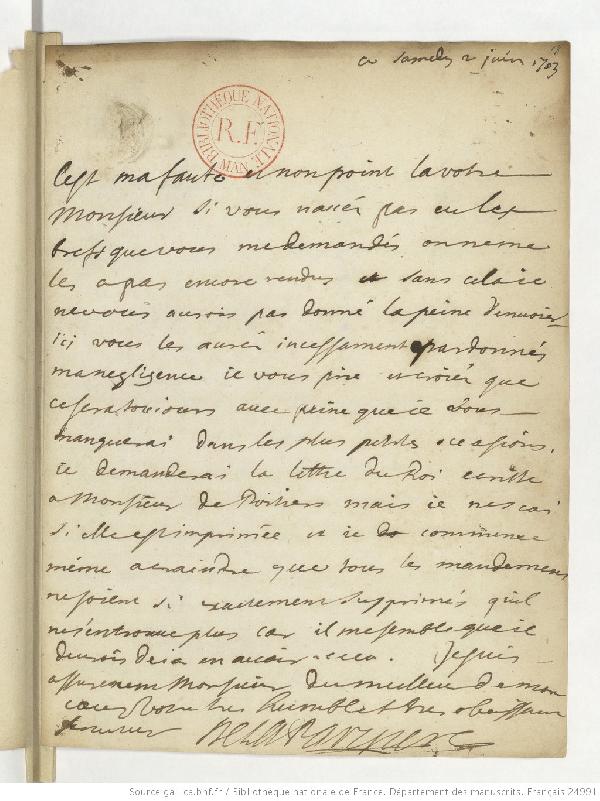 18
ce samedy 2 juin 1703
BIBLIOTHEQUE NATIONALE
R.F.
MAN.
C'est ma faute et non point la votre
Monsieur si vous naves pas eu les
brefs que vous me demandés on ne me
les a pas encore rendus et sans cela ie
ne vous aurois pas donné la peine d'envoier
ici vous les aurés incessament pardonnés
ma negligence ie vous prie et croiés que
ce sera toujours avec peine que ie vous
manquerai dans les plus petites occasions.
ie demanderai la lettre du Roi ecritte
a Monsieur de Poitiers mais ie ne scai
si elle est imprimée et ie commence
même a craindre que tous les mandemens
ne soient si exactement supprimés quil
ne s'en trouve plus car il me semble que ie
devrois deia en avoir . Je suis
assurement Monsieur du meilleur de mon
coeur votre tres humble et tres obeissant
serviteur
Source gallica.bnf.fr / Bibliothèque nationale de France. Département des manuscrits. Français 24991